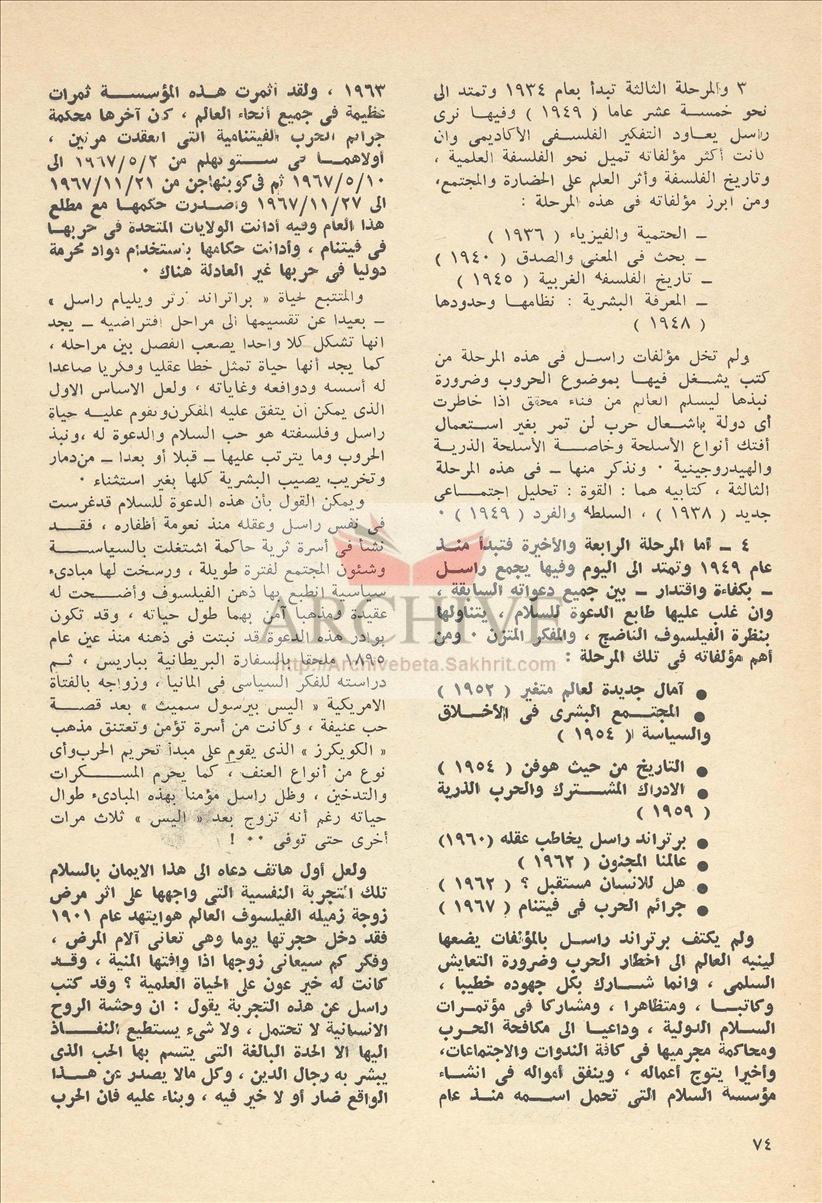 ٣ والمرحلة الثالثة تبدأ بعام ١٩٣٤ وتمتد الى
نحو خمسة عشر عاما ( ١٩٤٩ ) وفيها نرى
راسل يعاود التفكير الفلسفى الأكاديمى وان
كانت أكثر مؤلفاته تميل نحو الفلسفة العلمية ،
وتاريخ الفلسفة وأثر العلم على الحضارة والمجتمع،
ومن ابرز مؤلفاته فى هذه المرحلة :
ــ الحتمية والفيزياء ( ١٩٣٦ )
ــ بحث فى المعنى والصدق ( ١٩٤٠ )
ــ تاريخ الفلسفة الغربية ( ١٩٤٥ )
ــ المعرفة البشرية : نظامها وحدودها
( ١٩٤٨ )
ولم تخل مؤلفات راسل فى هذه المرحلة من
كتب يشغل فيها بموضوع الحروب وضرورة
نبذها ليسلم العالم من فناء محقق اذا خاطرت
أى دولة باشعال حرب لن تمر بغير استعمال
أفتك أنواع الأسلحة وخاصة الأسلحة الذرية
والهيدروجينية ٠ ونذكر منها ــ فى هذه المرحلة
الثالثة ، كتابيه هما : القوة : تحليل اجتماعى
جديد ( ١٩٣٨ ) ، السلطة والفرد ( ١٩٤٩ ) ٠
٤ ــ أما المرحلة الرابعة والأخيرة فتبدأ منذ
عام ١٩٤٩ وتمتد الى اليوم وفيها يجمع راسل
ــ بكفاءة واقتدار ــ بين جميع دعواته السابقة ،
وان غلب عليها طابع الدعوة للسلام ، يتناولها
بنظرة الفيلسوف الناضج ، والمفكر المتزن ٠ ومن
أهم مؤلفاته فى تلك المرحلة :
● آمال جديدة لعالم متغير ( ١٩٥٢ )
● المجتمع البشرى فى الأخلاق
والسياسة ( ١٩٥٤ )
● التاريخ من حيث هوفن ( ١٩٥٤ )
● الادراك المشترك والحرب الذرية
( ١٩٥٩ )
● برتراند راسل يخاطب عقله (١٩٦٠)
● عالمنا المجنون ( ١٩٦٢ )
● هل للانسان مستقبل ؟ ( ١٩٦٢ )
● جرائم الحرب فى فيتنام ( ١٩٦٧ )
ولم يكتف برتراند راسل بالمؤلفات يضعها
لينبه العالم الى اخطار الحرب وضرورة التعايش
السلمى ، وانما شارك بكل جهوده خطيبا ،
وكاتبا ، ومتظاهرا ، ومشاركا فى مؤتمرات
السلام الدولية ، وداعيا الى مكافحة الحرب
ومحاكمة مجرميها فى كافة الندوات والاجتماعات،
وأخيرا يتوج أعماله ، وينفق أمواله فى انشاء
مؤسسة السلام التى تحمل اسمه منذ عام
١٩٦٣ ، ولقد أثمرت هذه المؤسسة ثمرات
عظيمة فى جميع أنحاء العالم ، كان آخرها محكمة
جرائم الحرب الفيتنامية التى انعقدت مرتين ،
أولاهما فى ستوكهلم من ١٩٦٧/٥/٢ الى
١٩٦٧/٥/١٠ ثم فى كوبنهاجن من ١٩٦٧/١١/٢١
الى ١٩٦٧/١١/٢٧ وأصدرت حكمها مع مطلع
هذا العام وفيه أدانت الولايات المتحدة فى حربها
فى فيتنام ، وأدانت حكامها باستخدام مواد محرمة
دوليا فى حربها غير العادلة هناك ٠
والمتتبع لحياة « براتراند رثر ويليام راسل »
ــ بعيدا عن تقسيمها الى مراحل افتراضيه ــ يجد
انها تشكل كلا واحدا يصعب الفصل بين مراحله ،
كما يجد أنها حياة تمثل خطا عقليا وفكريا صاعدا
له أسسه ودوافعه وغاياته ، ولعل الاساس الاول
الذى يمكن أن يتفق عليه المفكرن وتقوم عليه حياة
راسل وفلسفته هو حب السلام والدعوة له ،ونبذ
الحروب وما يترتب عليها ــ قبلا أو بعدا ــ من دمار
وتخريب يصيب البشرية كلها بغير استثناء ٠
ويمكن القول بأن هذه الدعوة للسلام قدغرست
فى نفس راسل وعقله منذ نعومة أظفاره ، فقد
نشأ فى أسرة ثرية حاكمة اشتغلت بالسياسة
وشئون المجتمع لفترة طويلة ، ورسخت لها مبادىء
سياسية انطبع بها ذهن الفيلسوف وأضحت له
عقيدة ومذهبا آمن بهما طول حياته ، وقد تكون
بوادر هذه الدعوة قد نبتت فى ذهنه منذ عين عام
١٨٩٥ ملحقا بالسفارة البريطانية بباريس ، ثم
دراسته للفكر السياسى فى المانيا ، وزواجه بالفتاة
الامريكية « اليس بيرسول سميث » بعد قصة
حب عنيفة ، وكانت من أسرة تؤمن وتعتنق مذهب
« الكويكرز » الذى يقوم على مبدأ تحريم الحرب وأى
نوع من أنواع العنف ، كما يحرم المسكرات
والتدخين ، وظل راسل مؤمنا بهذه المبادىء طوال
حياته رغم أنه تزوج بعد « اليس » ثلاث مرات
أخرى حتى توفى ٠٠ !
ولعل أول هاتف دعاه الى هذا الايمان بالسلام
تلك التجربة النفسية التى واجهها على اثر مرض
زوجة زميله الفيلسوف العالم هوايتهد عام ١٩٠١
فقد دخل حجرتها يوما وهى تعانى آلام المرض ،
وفكر كم سيعانى زوجها اذا وافتها المنية ، وقد
كانت له خير عون على الحياة العلمية ؟ وقد كتب
راسل عن هذه التجربة يقول : ان وحشة الروح
الانسانية لا تحتمل ، ولا شىء يستطيع النفاذ
اليها الا الحدة البالغة التى يتسم بها الحب الذى
يبشر به رجال الدين ، وكل مالا يصدر عن هذا
الواقع ضار أو لا خير فيه ، وبناء عليه فان الحرب
٧٤
ARCHIVE
http://Archivebeta.Sakhrit.com